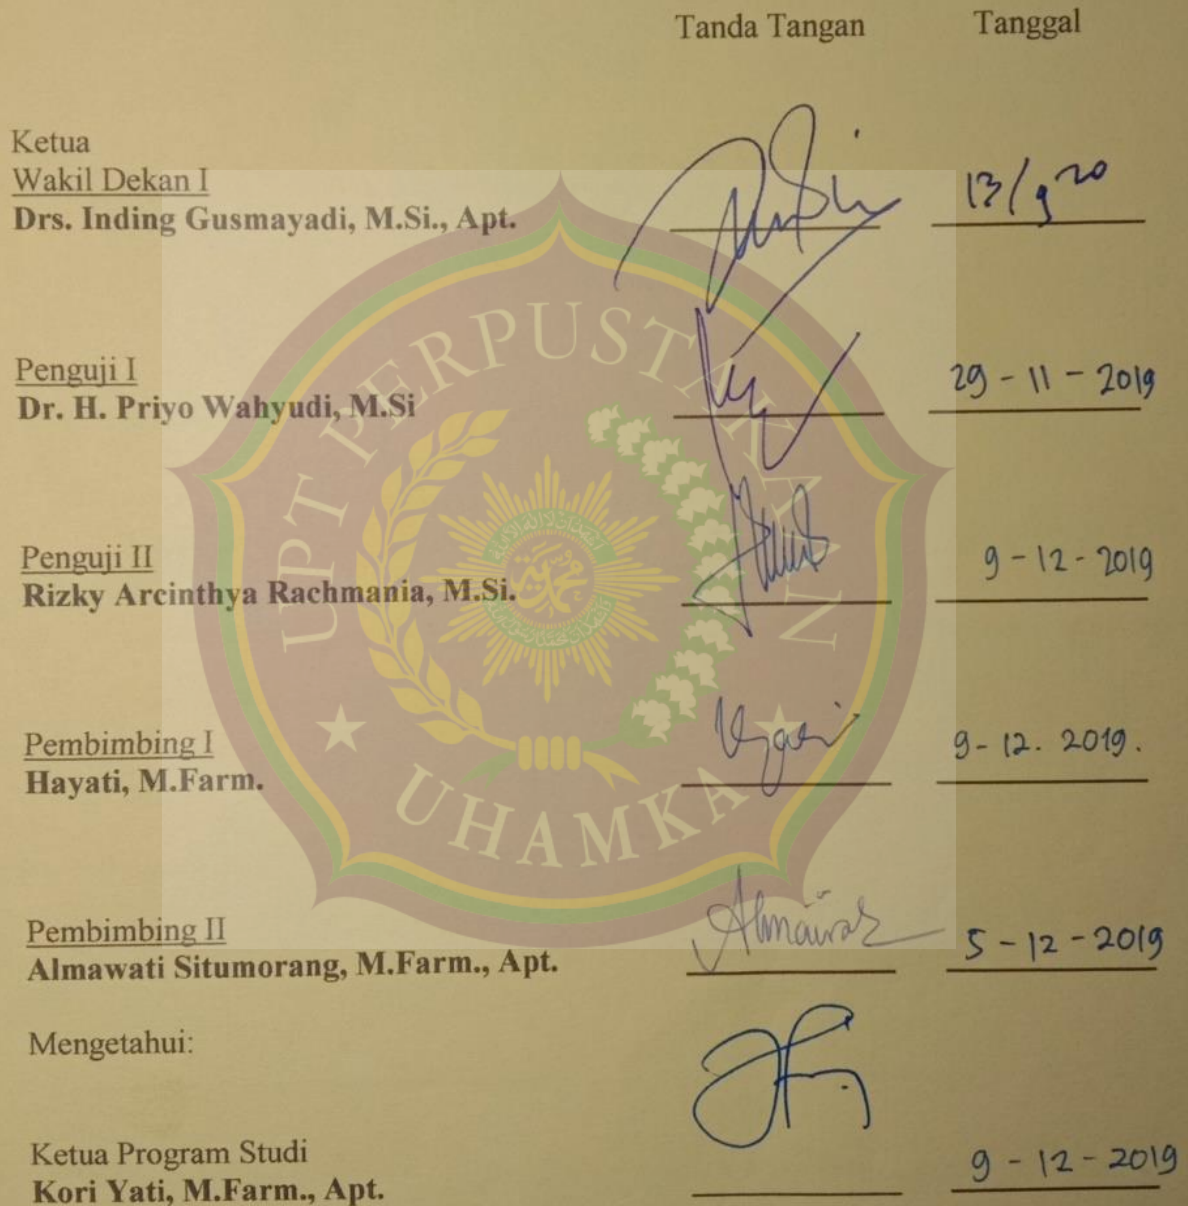 Tanda Tangan Tanggal
Ketua
Wakil Dekan I
Drs. Inding Gusmayadi, M.Si., Apt. 13/9 20
Penguji I
Dr. H. Priyo Wahyudi, M.Si 29 - 11 - 2019
Penguji II
Rizky Arcinthya Rachmania, M.Si. 9 - 12 - 2019
Pembimbing I
Hayati, M.Farm. 9 - 12. 2019.
Pembimbing II
Almawati Situmorang, M.Farm., Apt. 5 - 12 - 2019
Mengetahui:
Ketua Program Studi
Kori Yati, M.Farm., Apt. 9 - 12 - 2019
UPT PERPUSTAKAAN
UHAMKA